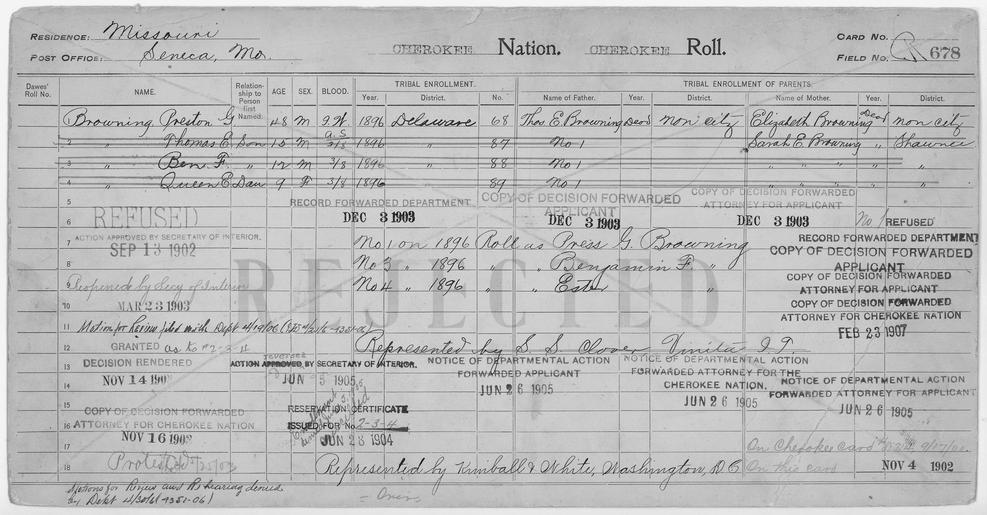 RESIDENCE: Missouri
POST OFFICE: Seneca, Mo.
CHEROKEE Nation. CHEROKEE Roll.
CARD NO.
FIELD NO. R 678
Dawes' Roll No. NAME. Relationship to Person first Named. AGE SEX. BLOOD. TRIBAL ENROLLMENT. Year. District. No. TRIBAL ENROLLMENT OF PARENTS. Name of Father. Year. District. Name of Mother. Year. District.
Browning Preston G 48 M I.W. 1896 Delaware 68 Thos. E. Browning Dead non city Elizabeth Browning Dead non city
2 " Thomas E. Son 15 M a.s. 3/8 1896 " 87 No 1 Sarah E. Browning " Shawnee
3 " Ben. F. " 12 M 3/8 1896 " 88 No 1 " " "
4 " Queen E. Dau 9 F 3/8 1896 " 89 No 1 " " "
5 RECORD FORWARDED DEPARTMENT. DEC 3 1903
COPY OF DECISION FORWARDED APPLICANT DEC 3 1903
COPY OF DECISION FORWARDED ATTORNEY FOR APPLICANT DEC 3 1903
6 REFUSED
No 1 REFUSED
ACTION APPROVED BY SECRETARY OF INTERIOR.
SEP 13 1902
REJECTED
7 No. 1 on 1896 Roll as Press G. Browning
8 No 3 " 1896 " " Benjamin F. "
9 No 4 " 1896 " " Ester "
RECORD FORWARDED DEPARTMENT
COPY OF DECISION FORWARDED
APPLICANT
COPY OF DECISION FORWARDED
ATTORNEY FOR APPLICANT
COPY OF DECISION FORWARDED
ATTORNEY FOR CHEROKEE NATION
FEB 23 1907
Reopened by Secy of Interior
10 MAR 23 1903
11 Motion for Review filed with Dept 4/19/06
12 GRANTED as to #2-3-4
Represented by S. S. Clover Vinita I.T.
13 DECISION RENDERED
14 NOV 14 190
reversed
ACTION APPROVED BY SECRETARY OF INTERIOR.
JUN 5 1905
NOTICE OF DEPARTMENTAL ACTION
FORWARDED APPLICANT
JUN 26 1905
NOTICE OF DEPARTMENTAL ACTION
FORWARDED ATTORNEY FOR THE
CHEROKEE NATION.
JUN 26 1905
NOTICE OF DEPARTMENTAL ACTION
FORWARDED ATTORNEY FOR APPLICANT
JUN 26 1905
15 COPY OF DECISION FORWARDED
16 ATTORNEY FOR CHEROKEE NATION
NOV 16 190
RESERVATION CERTIFICATE
ISSUED FOR No. 2-3-4
JUN 28 1904
17
On Cherokee card
On this card NOV 4 1902
18 Protested
Represented by Kimball & White, Washington, D.C.
Motions for Review and Rehearing denied
by Dept 4/30/6 (4351-06)